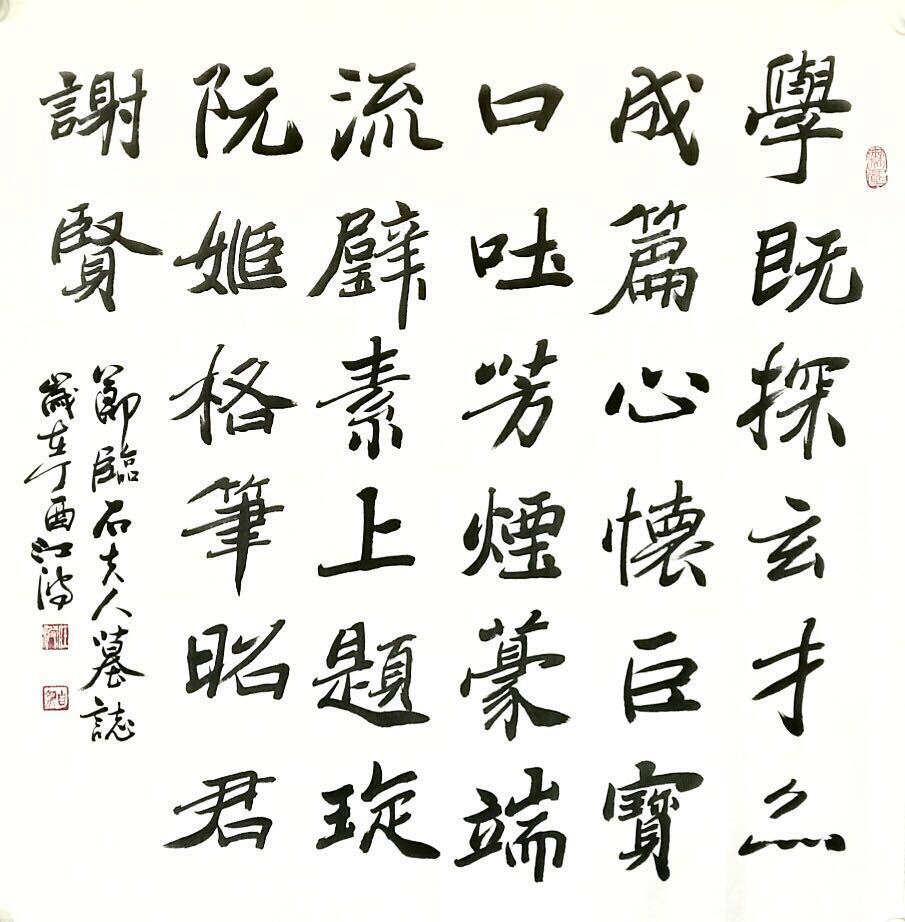 學既探玄才
成篇心懷巨寶
口吐芳煙蒙端
流璧素上題琁
阮姬格筆昭君
謝賢
節臨石夫人墓誌
歲在丁酉江